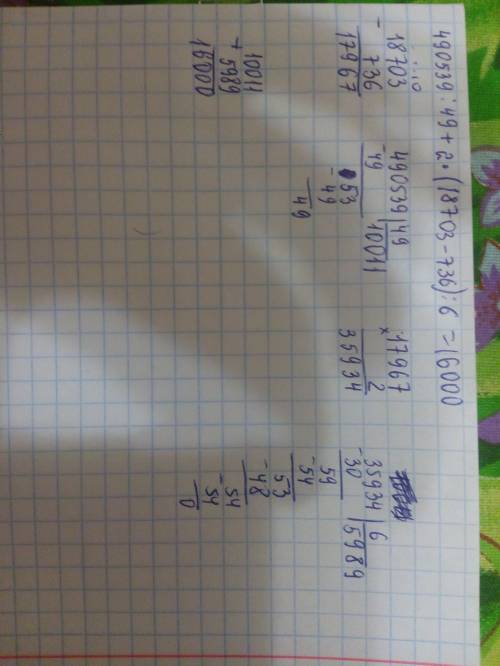 490539:49+2·(18703-736):6=16000
- 18703
736
17967
- 490539 | 49
49 | 10011
- 53
49
49
× 17967
2
35934
- 35934 | 6
30 | 5989
59
- 54
53
- 48
54
- 54
0
+ 10011
5989
16000